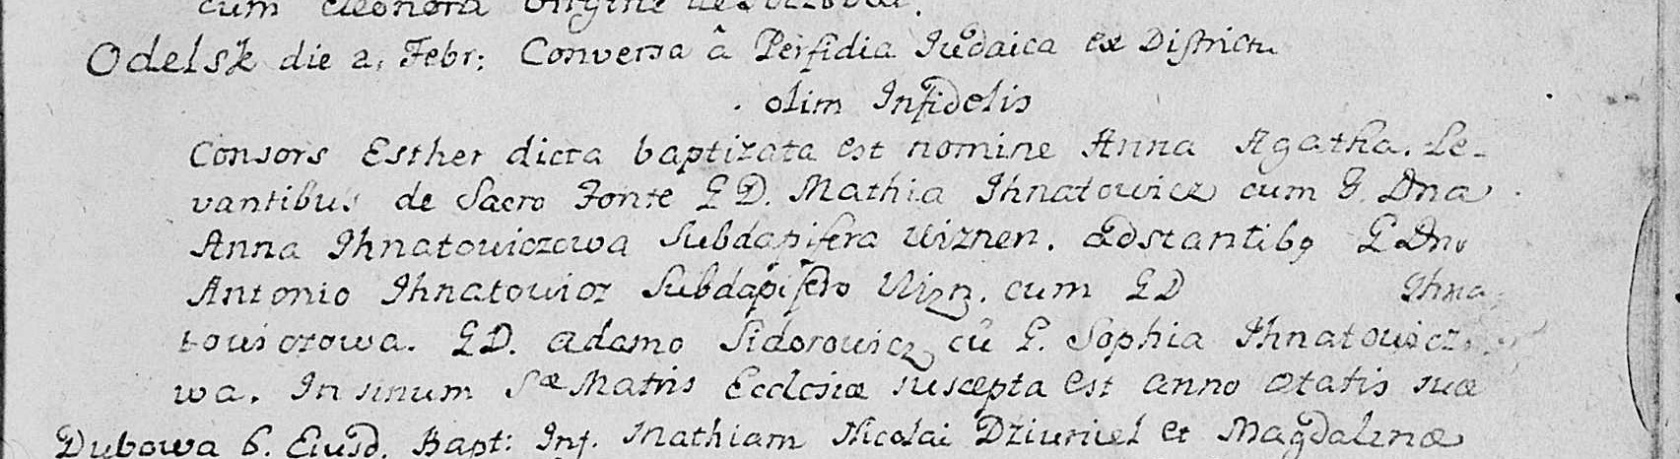 cum Eleonora Virgine de
Odelsk die 2. Febr: Conversa â Perfidia Iudaica ex Districtu
olim Infidelis
Consors Esther dicta baptizata est nomine Anna Agatha. Le-
vantibus de Sacro Fonte GD. Mathia Ihnatowicz cum G. Dna
Anna Ihnatowiczowa Subdapifera Wiznen. Adstantibq GDno
Antonio Ihnatowicz Subdapifero Wizn. cum GD Ihna
towiczowa. GD. Adamo Sidorowicz cū G. Sophia Ihnatowiczo
wa. In sinum Sæ Matris Ecclesiæ suscepta est anno ætatis suæ
Dubowa 6. Eiusd. Bapt: Inf. Mathiam Nicolai Dziurziel et Magdalenæ